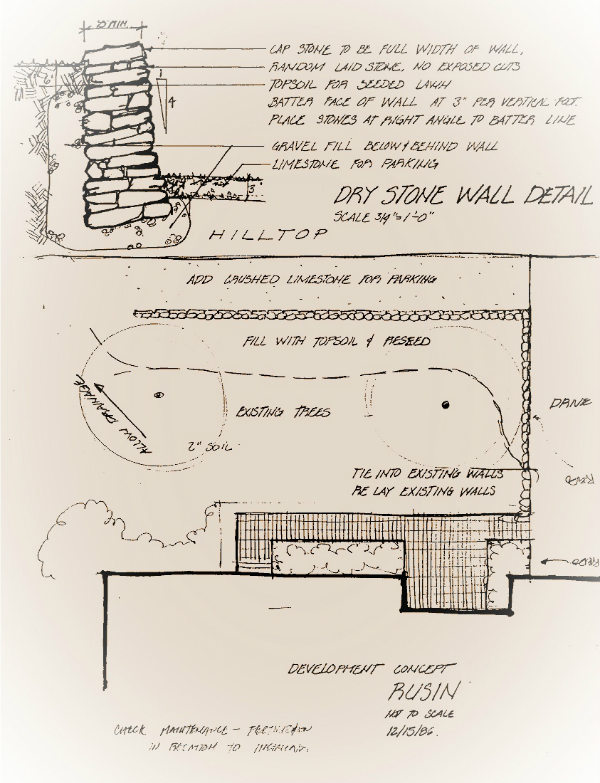 CAP STONE TO BE FULL WIDTH OF WALL,
RANDOM LAID STONE, NO EXPOSED CUTS
TOPSOIL FOR SEEDED LAWN
BATTER FACE OF WALL AT 3" PER VERTICAL FOOT.
PLACE STONES AT RIGHT ANGLE TO BATTER LINE
GRAVEL FILL BELOW & BEHIND WALL
LIMESTONE FOR PARKING
1
4
DRY STONE WALL DETAIL
SCALE 3/4"=1'-0"
HILLTOP
ADD CRUSHED LIMESTONE FOR PARKING
FILL WITH TOPSOIL & RESEED
ALLOW DRAINAGE
EXISTING TREES
2" SOIL
DRIVE
TIE INTO EXISTING WALLS
RE LAY EXISTING WALLS
DEVELOPMENT CONCEPT
RUSIN
NOT TO SCALE
12/15/86.
CHECK MAINTENANCE -
IN RELATION TO